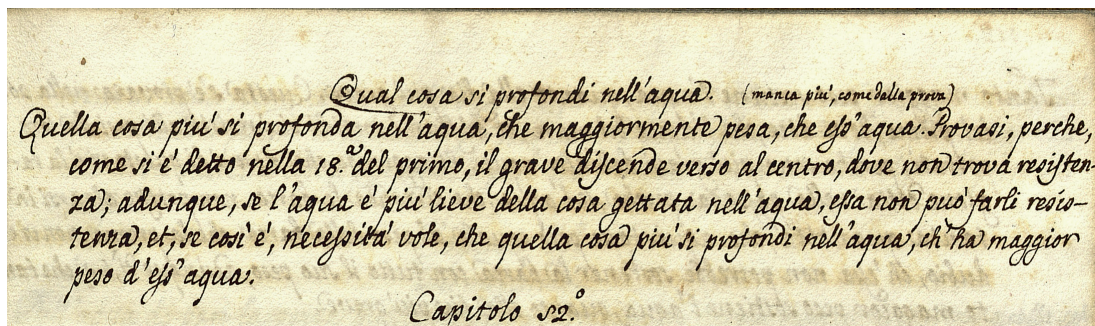 Qual cosa si profondi nell'aqua. (manca piú, come dalla prova)
Quella cosa piú si profonda nell'aqua, che maggiormente pesa, che ess'aqua. Provasi, perche,
come si é detto nella 18.ª del primo, il grave discende verso al centro, dove non trova resisten-
za; adunque, se l'aqua é piú lieve della cosa gettata nell'aqua, essa non puó farli resis-
tenza, et, se cosi é, necessitá vole, che quella cosa piú si profondi nell'aqua, ch'ha maggior
peso d'ess'aqua.
Capitolo 52.º